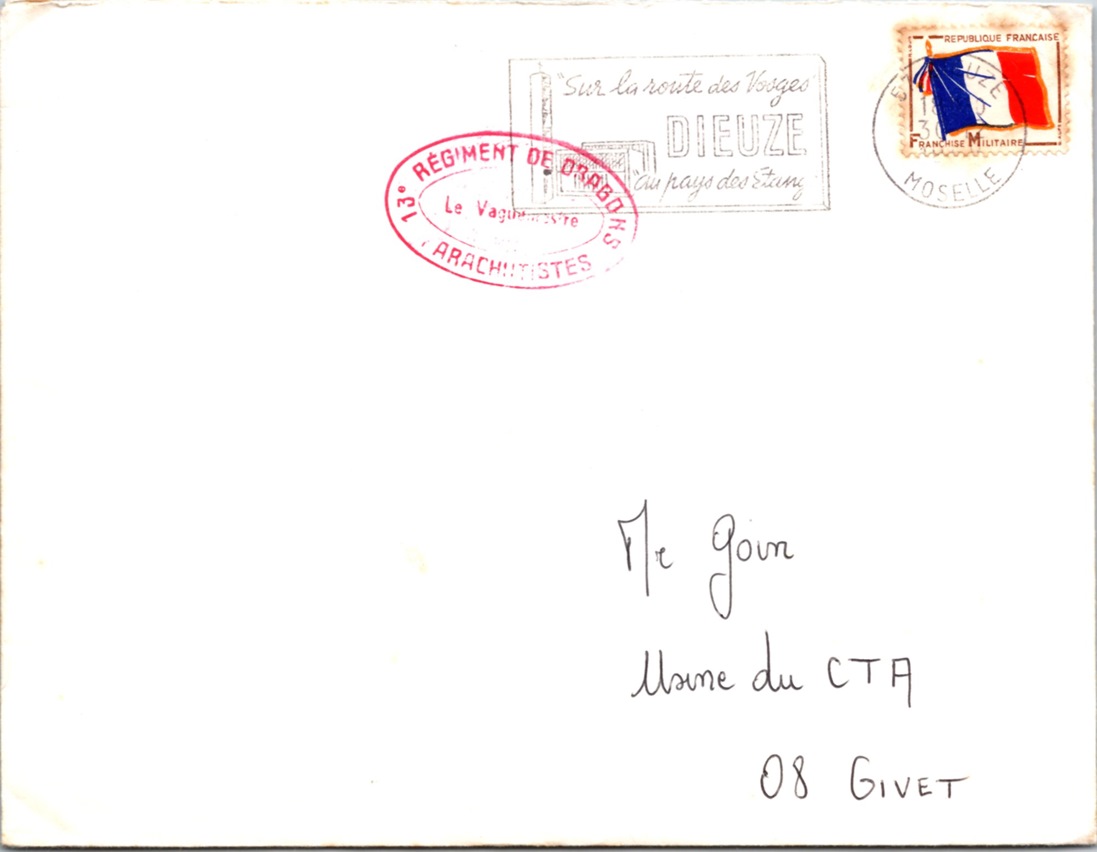 RÉPUBLIQUE FRANÇAISE
FRANCHISE MILITAIRE
57 DIEUZE
MOSELLE
"Sur la route des Vosges
DIEUZE
"au pays des Etang
13e RÉGIMENT DE DRAGONS
Le Vaguemestre
PARACHUTISTES
Mr Goin
Usine du CTA
08 GIVET